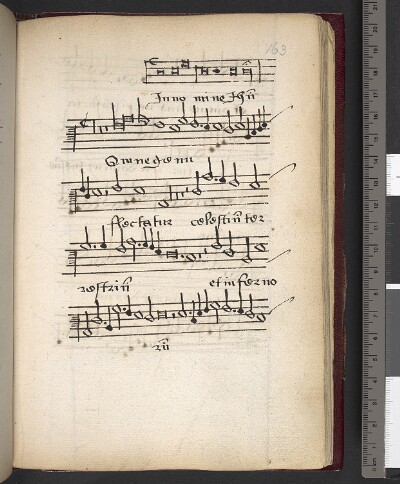 163
In no mine Ihū
Omne genu
flectatur celestiū ter
restriū et inferno
rū